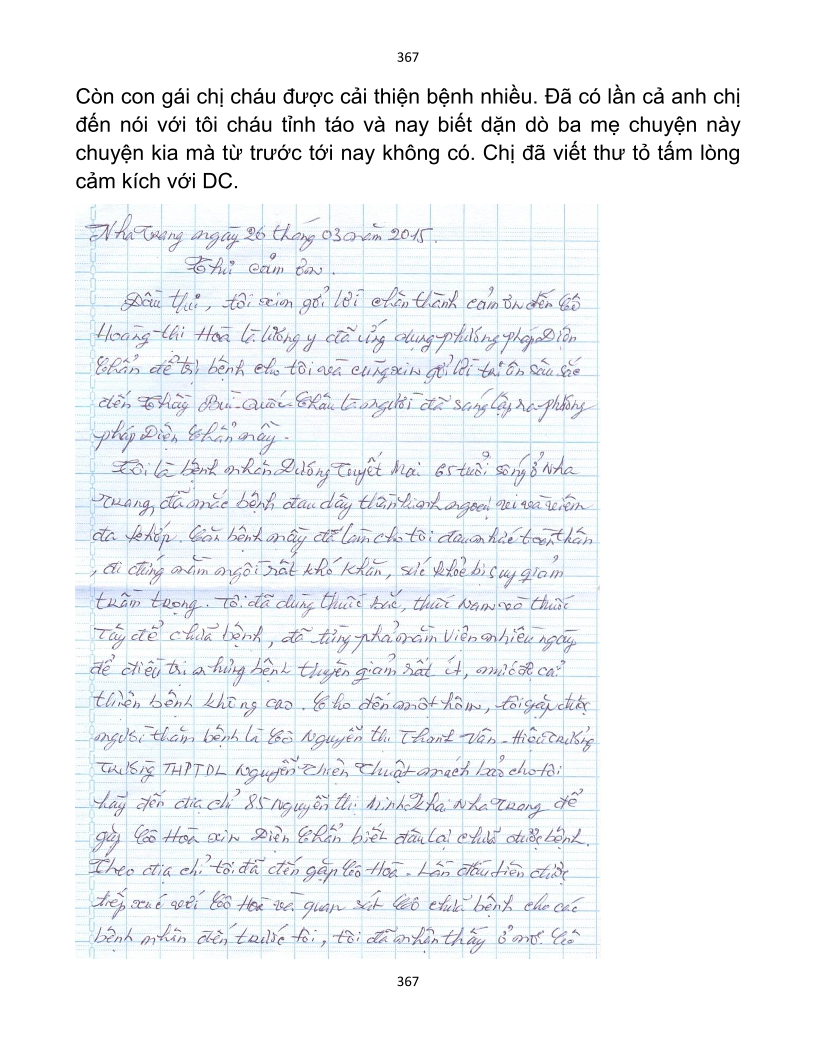 367
Còn con gái chị cháu được cải thiện bệnh nhiều. Đã có lần cả anh chị
đến nói với tôi cháu tỉnh táo và nay biết dặn dò ba mẹ chuyện này
chuyện kia mà từ trước tới nay không có. Chị đã viết thư tỏ tấm lòng
cảm kích với DC.
Nha Trang ngày 26 tháng 03 năm 2015.
Thư cảm ơn.
Đầu thư, tôi xin gởi lời chân thành cảm ơn đến Cô
Hoàng-thị Hoà là lương y đã ứng dụng phương pháp Diện
Chẩn để trị bệnh cho tôi và cũng xin gởi lời tri ân sâu sắc
đến Thầy Bùi-Quốc-Châu là người đã sáng lập ra phương
pháp Diện Chẩn nầy.
Tôi là bệnh nhân Dương Tuyết Mai 65 tuổi sống ở Nha
Trang, đã mắc bệnh đau dây thần kinh ngoại vi và viêm
đa khớp. Căn bệnh nầy đã làm cho tôi đau nhức toàn thân
, đi đứng nằm ngồi rất khó khăn, sức khỏe bị suy giảm
trầm trọng. Tôi đã dùng thuốc bắc, thuốc Nam và thuốc
Tây để chữa bệnh, đã từng phải nằm viện nhiều ngày
để điều trị nhưng bệnh thuyên giảm rất ít, mức độ cải
thiện bệnh không cao. Cho đến một hôm, tôi gặp được
người thăm bệnh là Cô Nguyễn thị Thanh Vân - Hiệu trưởng
trường THPTDL Nguyễn Thiện Thuật mách bảo cho tôi
hãy đến địa chỉ 85 Nguyễn thị Minh Khai Nha Trang để
gặp Cô Hoà xin Diện Chẩn biết đâu lại chữa được bệnh.
Theo địa chỉ tôi đã đến gặp Cô Hoà. Lần đầu tiên được
tiếp xúc với Cô Hoà và quan sát Cô chữa bệnh cho các
bệnh nhân đến trước tôi, tôi đã nhận thấy ở nơi Cô
367